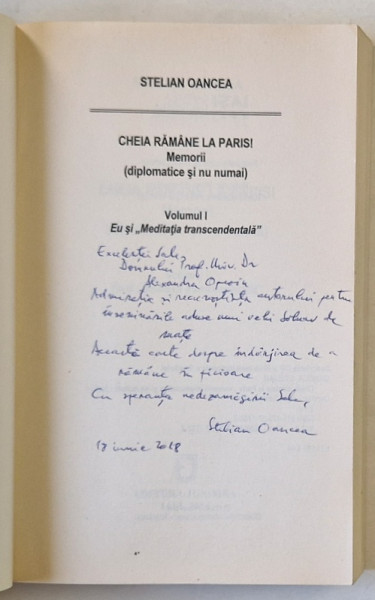 STELIAN OANCEA
CHEIA RĂMÂNE LA PARIS!
Memorii
(diplomatice și nu numai)
Volumul I
Eu și „Meditația transcendentală”
Excelenței Sale,
Domnului Prof. Univ. Dr.
Alexandru
Admirație și recunoștința autorului pentru
aduse unui vechi
Această carte despre îndârjirea de a
rămâne în picioare
Cu speranța nedezamăgirii Sale,
Stelian Oancea
iunie 2018